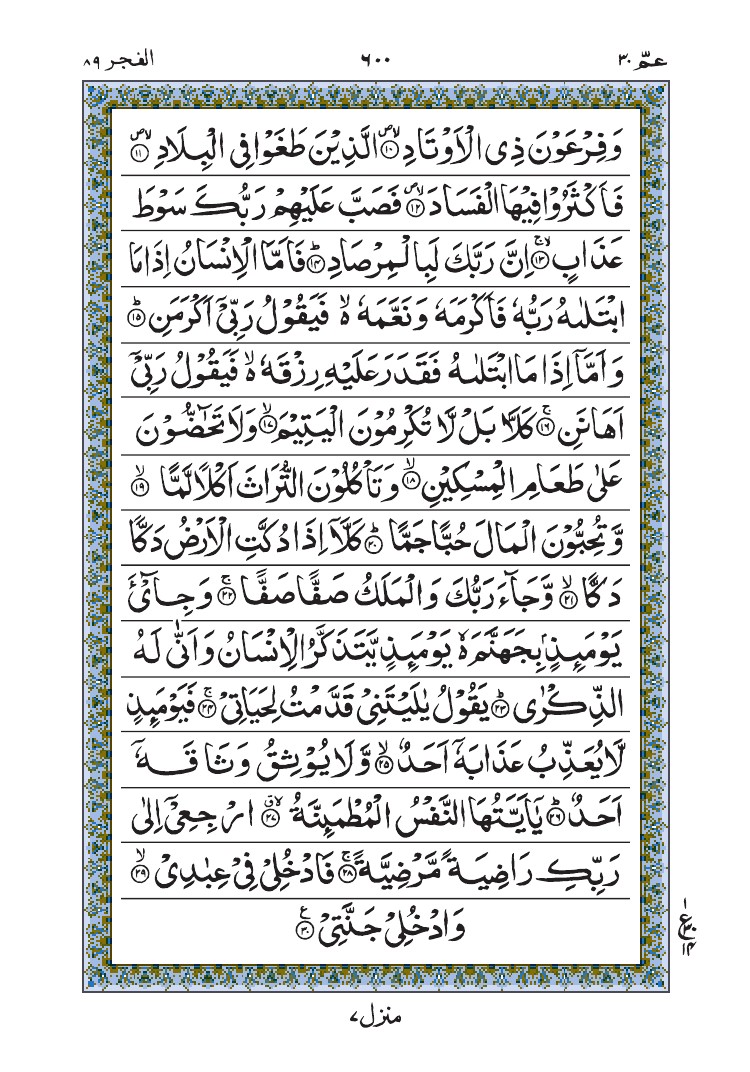 عمّ ٣٠ ٦٠٠ الفجر ٨٩
وَفِرْعَوْنَ ذِی الْاَوْتَادِ ۪ۙۙ ﴿١٠﴾ الَّذِیْنَ طَغَوْا فِی الْبِلَادِ ۪ۙۙ ﴿١١﴾
فَاَكْثَرُوْا فِیْهَا الْفَسَادَ ۪ۙۙ ﴿١٢﴾ فَصَبَّ عَلَیْهِمْ رَبُّكَ سَوْطَ
عَذَابٍ ۚۙ ﴿١٣﴾ اِنَّ رَبَّكَ لَبِالْمِرْصَادِ ؕ ﴿١٤﴾ فَاَمَّا الْاِنْسَانُ اِذَا مَا
ابْتَلٰىهُ رَبُّهٗ فَاَكْرَمَهٗ وَ نَعَّمَهٗ ۙ۬ فَیَقُوْلُ رَبِّیْۤ اَكْرَمَنِ ؕ ﴿١٥﴾
وَ اَمَّاۤ اِذَا مَا ابْتَلٰىهُ فَقَدَرَ عَلَیْهِ رِزْقَهٗ ۙ۬ فَیَقُوْلُ رَبِّیْۤ
اَهَانَنِ ۚ ﴿١٦﴾ كَلَّا بَلْ لَّا تُكْرِمُوْنَ الْیَتِیْمَ ۙ ﴿١٧﴾ وَلَا تَحٰٓضُّوْنَ
عَلٰی طَعَامِ الْمِسْكِیْنِ ۙ ﴿١٨﴾ وَ تَاْكُلُوْنَ التُّرَاثَ اَكْلًا لَّمًّا ۙ ﴿١٩﴾
وَّ تُحِبُّوْنَ الْمَالَ حُبًّا جَمًّا ؕ ﴿٢٠﴾ كَلَّاۤ اِذَا دُكَّتِ الْاَرْضُ دَكًّا
دَكًّا ۙ ﴿٢١﴾ وَّ جَآءَ رَبُّكَ وَ الْمَلَكُ صَفًّا صَفًّا ۚ ﴿٢٢﴾ وَ جِایْٓءَ
یَوْمَىِٕذٍۭ بِجَهَنَّمَ ۙ۬ یَوْمَىِٕذٍ یَّتَذَكَّرُ الْاِنْسَانُ وَ اَنّٰی لَهُ
الذِّكْرٰی ؕ ﴿٢٣﴾ یَقُوْلُ یٰلَیْتَنِیْ قَدَّمْتُ لِحَیَاتِیْ ۚ ﴿٢٤﴾ فَیَوْمَىِٕذٍ
لَّا یُعَذِّبُ عَذَابَهٗۤ اَحَدٌ ۙ ﴿٢٥﴾ وَّ لَا یُوْثِقُ وَ ثَاقَهٗۤ
اَحَدٌ ؕ ﴿٢٦﴾ یٰۤاَیَّتُهَا النَّفْسُ الْمُطْمَىِٕنَّةُ ۗۖ ﴿٢٧﴾ ارْجِعِیْۤ اِلٰی
رَبِّكِ رَاضِیَةً مَّرْضِیَّةً ۚ ﴿٢٨﴾ فَادْخُلِیْ فِیْ عِبٰدِیْ ۙ ﴿٢٩﴾
وَ ادْخُلِیْ جَنَّتِیْ ﴿٣٠﴾ ع
١
ع ٣٠
١٤
منزل ٧